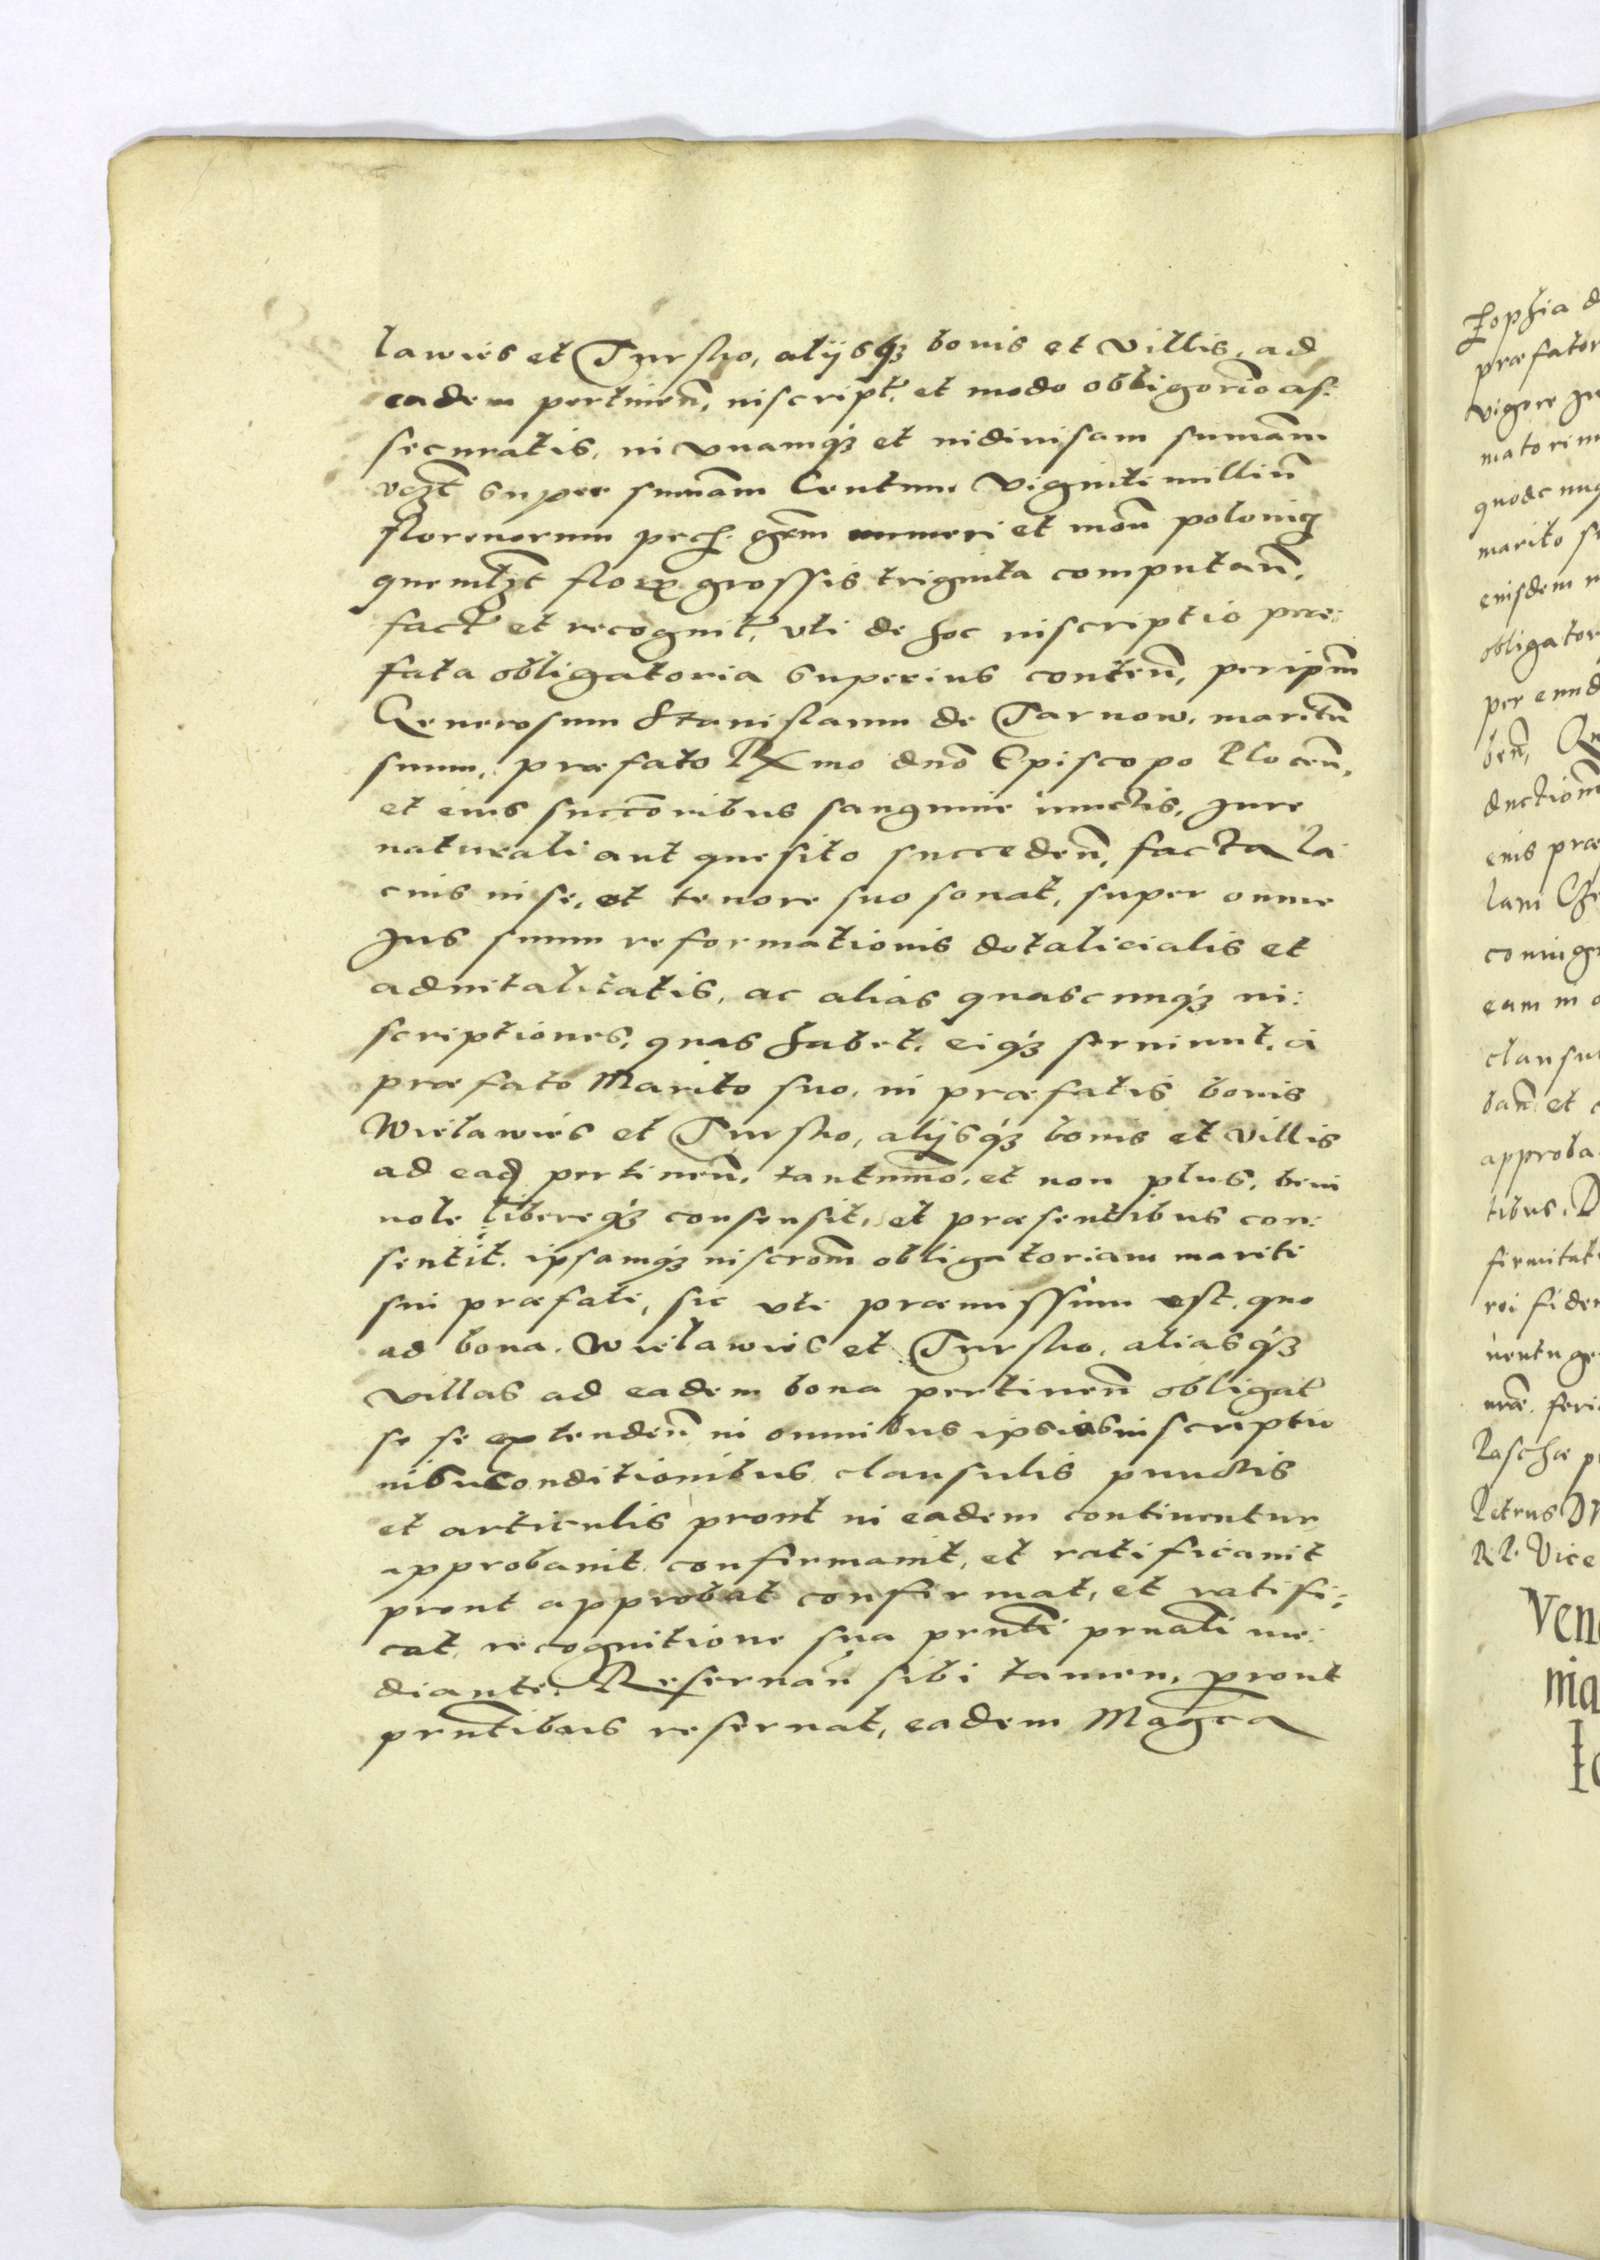 lawies et Tursko, alijsq3 bonis et villis, ad
eadem pertinen̄, inscript̄, et modo obligorio as:
securatis, in vnamq3 et indiuisam sum̄am
vz̄t super sum̄am Centum Viginti milliū
florenorum pech: gēm numeri et mon̄ polonię
quemlz̄t flor̄ grossis triginta computan̄,
fact̄ et recognit̄, vti de hoc inscriptio præ:
fata obligatoria superius conten̄, per ipm̄
Generosum Stanislaum de Tarnow, maritū
suum, præfato Rx̄mo dno Episcopo Plocen̄,
et eius succoribus sanguine iunctis, Jure
naturali aut quesito succeden̄, facta la
cius in se, et tenore suo sonat, super omne
Jus suum reformationis dotalicialis et
aduitalitatis, ac alias quascunq3 in:
scriptiones, quas habet, eiq3 seruiunt, à
præfato Marito suo, in præfatis bonis
Wielawies et Tursko, alijsq3 bonis et villis
ad ead pertinen̄, tantummo, et non plus, beni
uole libereq3 consensit, et præsentibus con:
sentit, ipsamq3 inscrom̄ obligatoriam mariti
sui præfati, sic vti præmissum est, quo
ad bona, Wielawies et Tursko, aliasq3
villas ad eadem bona pertinen̄ obligat̄
se se extenden̄ in omnibus ipsius inscriptio
nibus conditionibus clausulis punctis
et articulis prout in eadem continentur
approbauit confirmauit, et ratificauit
prout approbat confirmat, et ratifi:
cat, recognitione sua prn̄ti prnali me:
diante. Reseruan̄ sibi tamen, prout
prn̄tibus reseruat, eadem Mag̅ca
præfator
vigore
quodcunq
marito
eiusdem
obligator
eius præ
coniug
eam in
clausu
approba
tibus.
Petrus
Vice